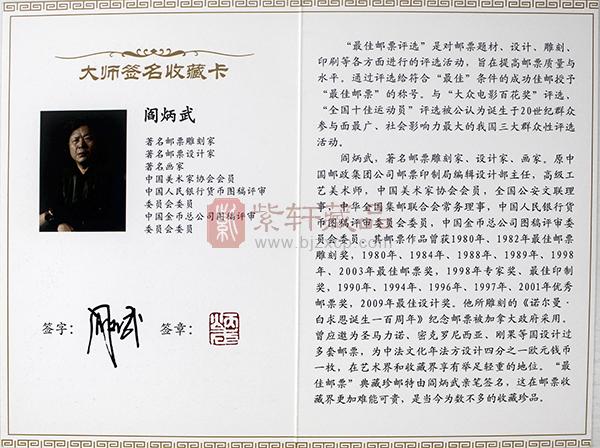 大师签名收藏卡
阎炳武
著名邮票雕刻家
著名邮票设计家
著名画家
中国美术家协会会员
中国人民银行货币图稿评审
委员会委员
中国金币总公司图稿评审
委员会委员
签字：
签章：
“最佳邮票评选”是对邮票题材、设计、雕刻、
印刷等各方面进行的评选活动，旨在提高邮票质量与
水平。通过评选给符合“最佳”条件的成功佳邮授予
“最佳邮票”的称号。与“大众电影百花奖”评选、
“全国十佳运动员”评选被公认为诞生于20世纪群众
参与面最广、社会影响力最大的我国三大群众性评选
活动。
阎炳武，著名邮票雕刻家、设计家、画家。原中
国邮政集团公司邮票印制局编辑设计部主任，高级工
艺美术师，中国美术家协会会员，全国公安文联理
事、中华全国集邮联合会常务理事，中国人民银行货
币图稿评审委员会委员，中国金币总公司图稿评审委
员会委员。其邮票作品曾获1980年、1982年最佳邮票
雕刻奖，1980年、1984年、1988年、1989年、1998
年、2003年最佳邮票奖，1998年专家奖、最佳印制
奖，1990年、1994年、1996年、1997年、2001年优秀
邮票奖，2009年最佳设计奖。他所雕刻的《诺尔曼·
白求恩诞生一百周年》纪念邮票被加拿大政府采用。
曾应邀为圣马力诺、密克罗尼西亚、刚果等国设计过
多套邮票，为中法文化年法方设计四分之一欧元钱币
一枚，在艺术界和收藏界享有举足轻重的地位。“最
佳邮票”典藏珍邮特由阎炳武亲笔签名，这在邮票收藏
界更加难能可贵，是当今为数不多的收藏珍品。
紫轩藏品
www.bjzxcp.com